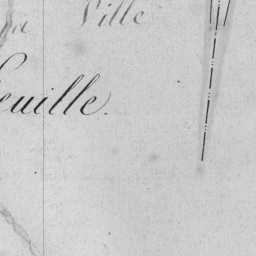 Ville
euille.